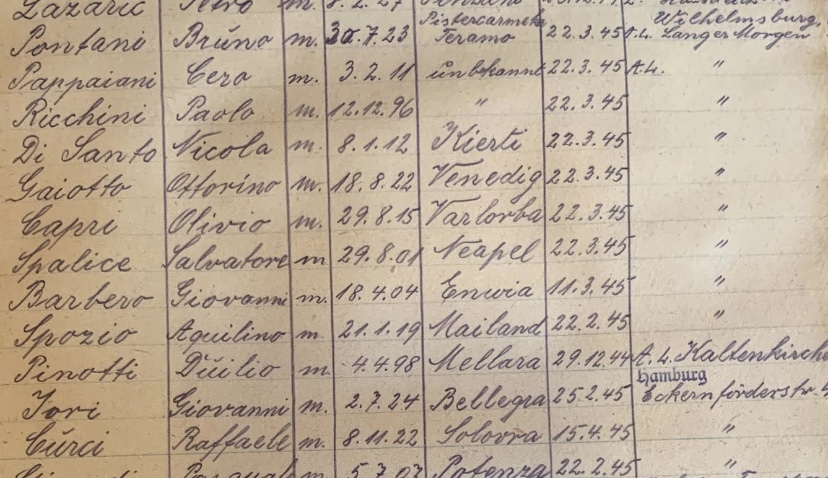 Lazaric Petro m. 8.2.27
Pontani Bruno m. 30.7.23 Teramo 22.3.45 A.L. Wilhelmsburg, Langer Morgen
Pappaiani Cero m. 3.2.11 unbekannt 22.3.45 A.L. "
Ricchini Paolo m. 12.12.96 " 22.3.45 "
Di Santo Nicola m. 8.1.12 Kierti 22.3.45 "
Gaiotto Ottorino m. 18.8.22 Venedig 22.3.45 "
Capri Olivio m. 29.8.15 Varlorba 22.3.45 "
Spalice Salvatore m 29.8.01 Neapel 22.3.45 "
Barbero Giovanni m. 18.4.04 Enwia 11.3.45 "
Spozio Aquilino m. 21.1.19 Mailand 22.2.45 "
Pinotti Duilio m. 4.4.98 Mellara 29.12.44 A.L. Kaltenkirche
Hamburg
Tori Giovanni m. 2.7.24 Bellegra 25.2.45 Eckernförderstr.
Curci Raffaele m. 8.11.22 Solovra 15.4.45 "
m 5.7.07 Potenza 22.2.45 "